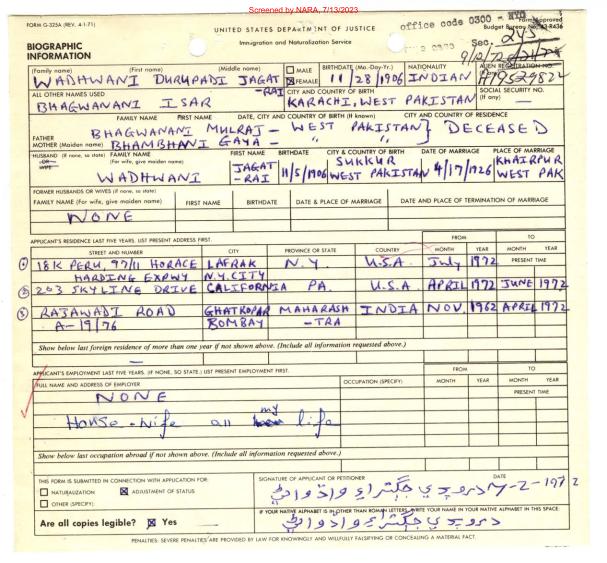 Screened by NARA, 7/13/2023
FORM G-325A (REV. 4-1-71)
UNITED STATES DEPARTMENT OF JUSTICE
office code 0300 - NYC
Form Approved
Immigration and Naturalization Service
Budget Bureau No. 43-R436
BIOGRAPHIC INFORMATION
Sec. 245
(Family name) (First name) (Middle name)
WADHWANI DURUPADI JAGAT-RAI
MALE
FEMALE
BIRTHDATE (Mo.-Day-Yr.)
11/28/1906
NATIONALITY
INDIAN
ALIEN REGISTRATION NO.
A19529822
ALL OTHER NAMES USED
BHAGWANANI ISAR
CITY AND COUNTRY OF BIRTH
KARACHI, WEST PAKISTAN
SOCIAL SECURITY NO. (If any)
—
FAMILY NAME FIRST NAME DATE, CITY AND COUNTRY OF BIRTH (If known) CITY AND COUNTRY OF RESIDENCE
FATHER BHAGWANANI MULRAJ - WEST PAKISTAN } DECEASED
MOTHER (Maiden name) BHAMBHANI GAYA - " "
HUSBAND (If none, so state) FAMILY NAME FIRST NAME BIRTHDATE CITY & COUNTRY OF BIRTH DATE OF MARRIAGE PLACE OF MARRIAGE
OR WIFE (For wife, give maiden name)
WADHWANI JAGAT-RAI 11/5/1906 SUKKUR WEST PAKISTAN 4/17/1926 KHAIRPUR WEST PAK
FORMER HUSBANDS OR WIVES (If none, so state)
FAMILY NAME (For wife, give maiden name) FIRST NAME BIRTHDATE DATE & PLACE OF MARRIAGE DATE AND PLACE OF TERMINATION OF MARRIAGE
NONE
APPLICANT'S RESIDENCE LAST FIVE YEARS. LIST PRESENT ADDRESS FIRST. FROM TO
STREET AND NUMBER CITY PROVINCE OR STATE COUNTRY MONTH YEAR MONTH YEAR
① 18K PERU, 97/11 HORACE LAFRAK N.Y. U.S.A. July 1972 PRESENT TIME
HARDING EXPWY N.Y. CITY
② 203 SKYLINE DRIVE CALIFORNIA PA. U.S.A. APRIL 1972 JUNE 1972
③ RAJAWADI ROAD GHATKOPAR MAHARASH INDIA NOV. 1962 APRIL 1972
A-19/76 BOMBAY -TRA
Show below last foreign residence of more than one year if not shown above. (Include all information requested above.)
—
APPLICANT'S EMPLOYMENT LAST FIVE YEARS. (IF NONE, SO STATE.) LIST PRESENT EMPLOYMENT FIRST. FROM TO
FULL NAME AND ADDRESS OF EMPLOYER OCCUPATION (SPECIFY) MONTH YEAR MONTH YEAR
NONE PRESENT TIME
House-Wife all my life
Show below last occupation abroad if not shown above. (Include all information requested above.)
THIS FORM IS SUBMITTED IN CONNECTION WITH APPLICATION FOR:
NATURALIZATION ADJUSTMENT OF STATUS
OTHER (SPECIFY):
SIGNATURE OF APPLICANT OR PETITIONER DATE
7-2-1972
Are all copies legible? Yes
IF YOUR NATIVE ALPHABET IS IN OTHER THAN ROMAN LETTERS, WRITE YOUR NAME IN YOUR NATIVE ALPHABET IN THIS SPACE:
PENALTIES: SEVERE PENALTIES ARE PROVIDED BY LAW FOR KNOWINGLY AND WILLFULLY FALSIFYING OR CONCEALING A MATERIAL FACT.